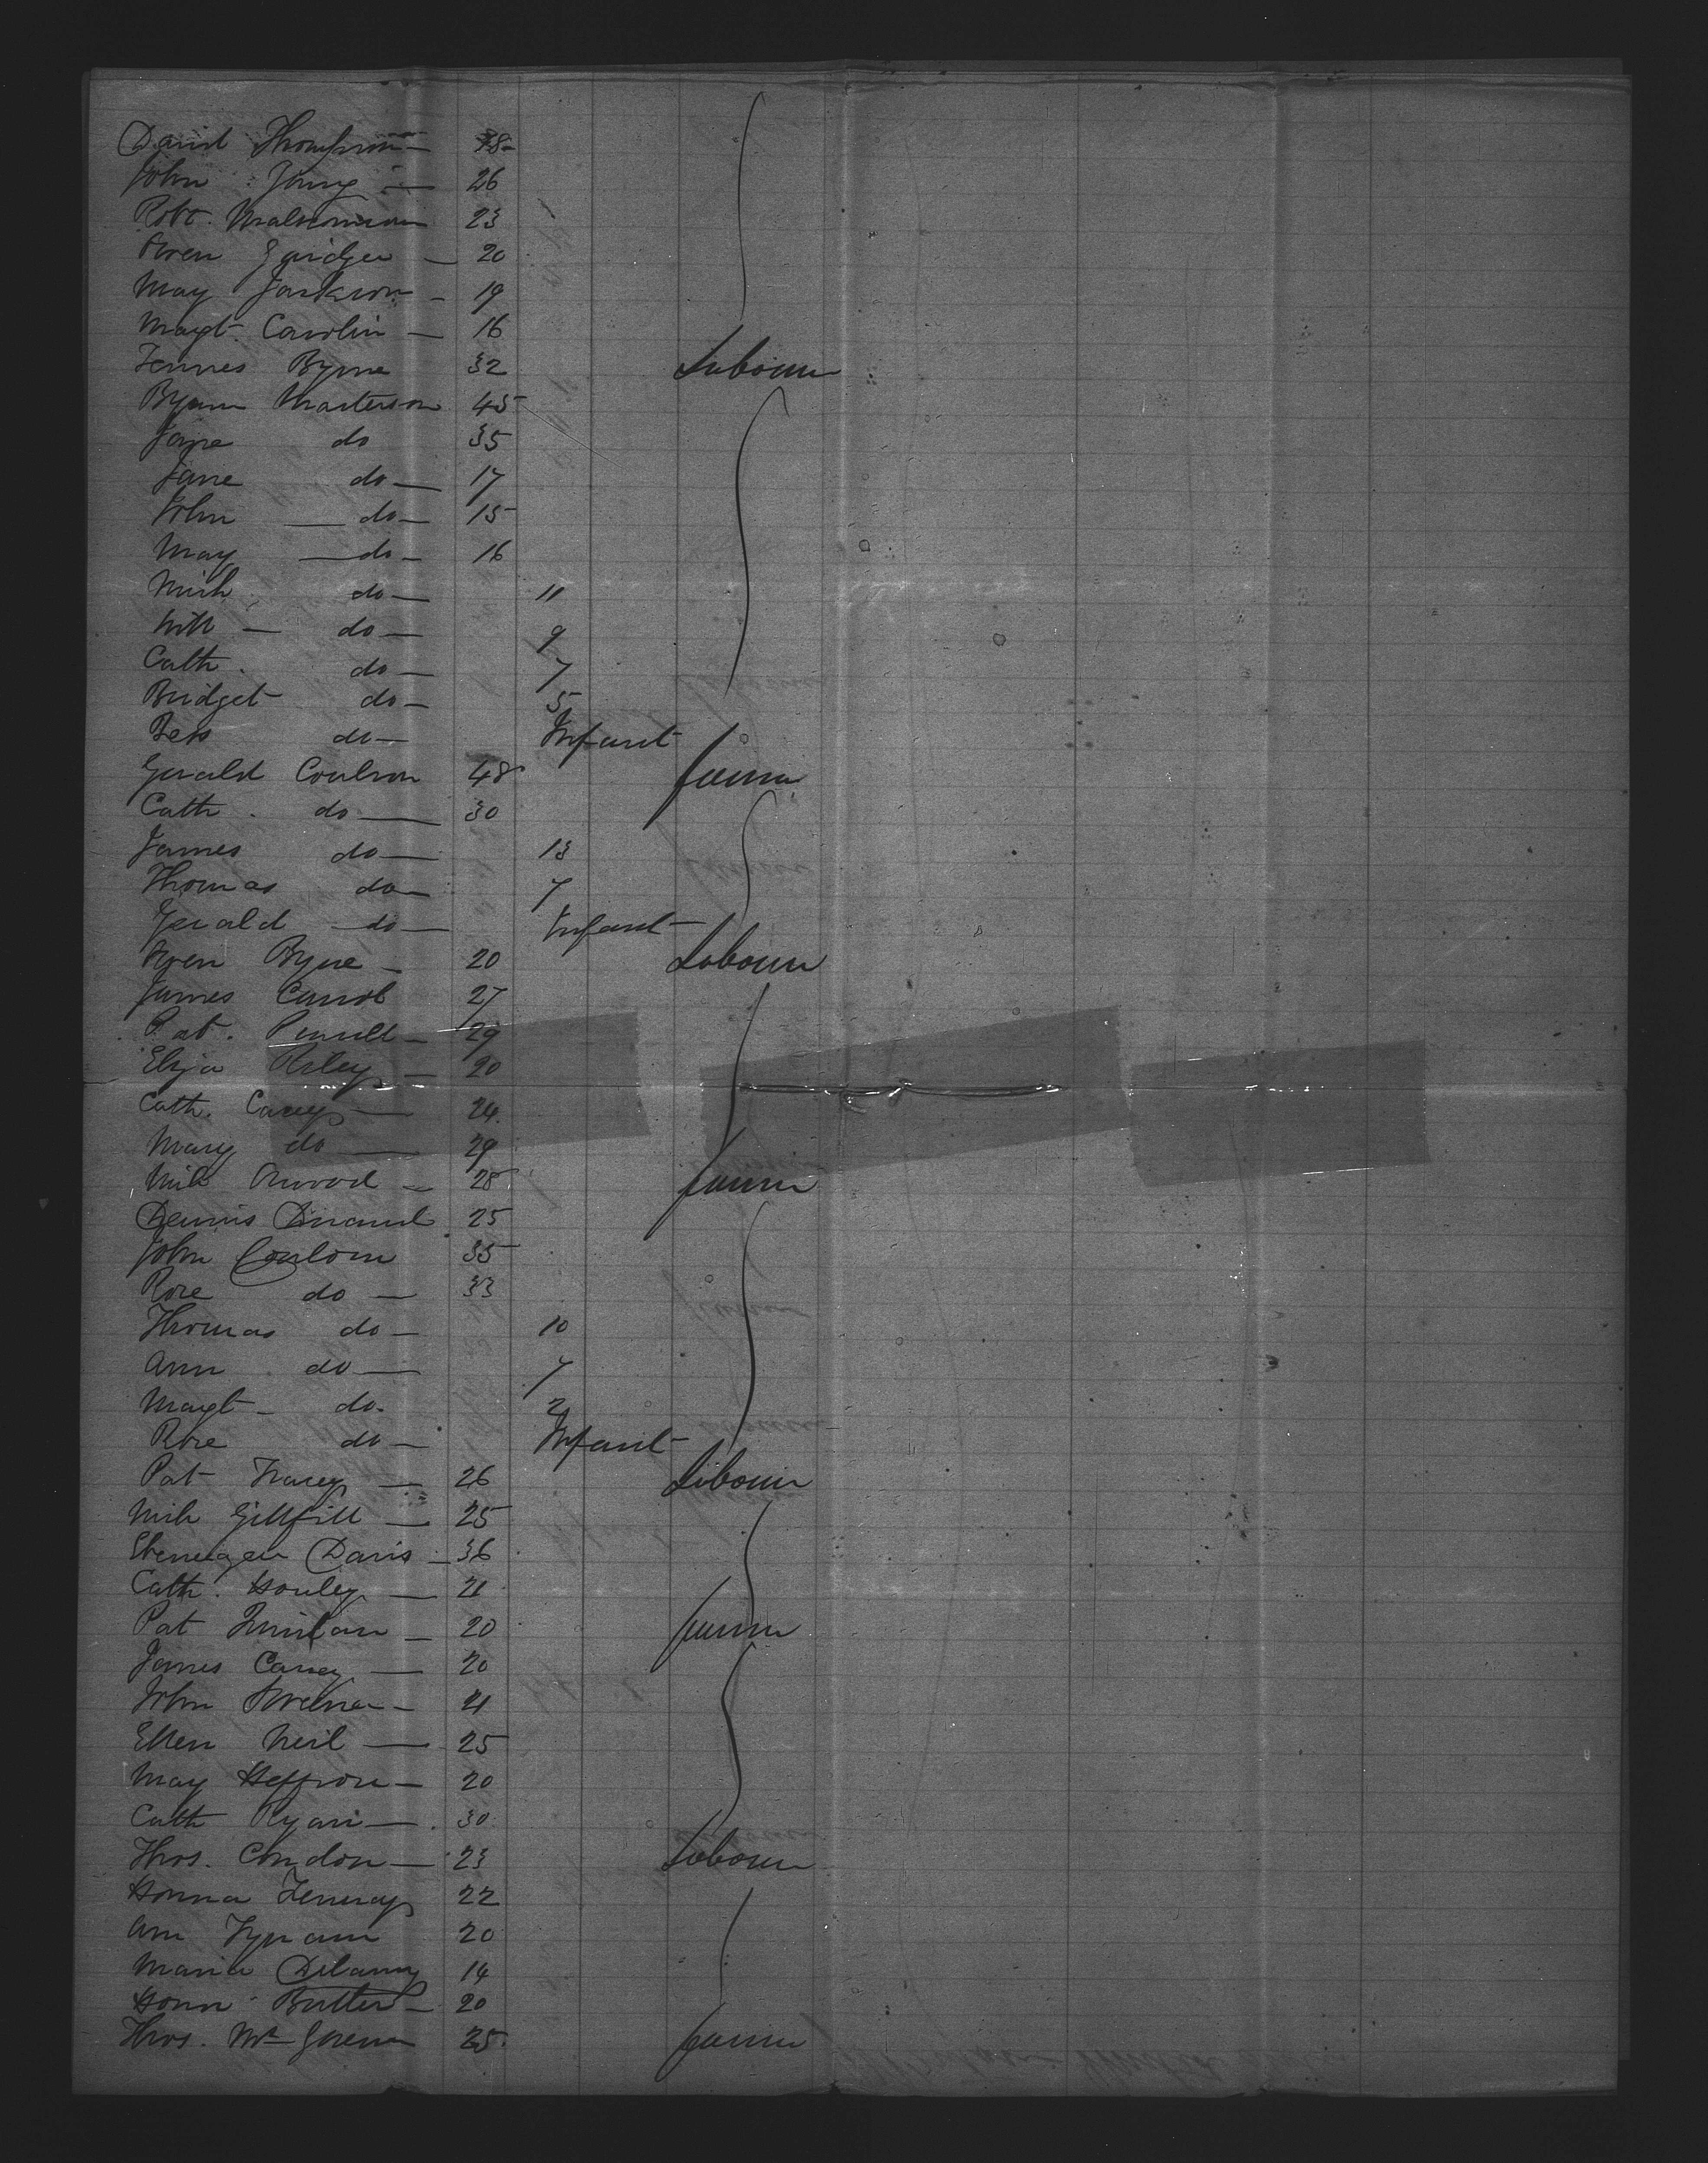 David Thompson — 38
John Young — 26
Robt. Malcomson 23
Owen — 20
May Jackson — 19
Magt. Carolin — 16
James Byrne 32 Labourer
Masterson 45
Jane do 35
Jane do — 17
John — do — 15
May — do — 16
Mich. do — 11
Will — do — 9
Cath. do — 7
Bridget do — 5
Bess do — Infant
Gerald Coulson 48 farmer
Cath. do — 30
James do — 13
Thomas do — 7
Gerald do — Infant
Owen Byrne — 20 Labourer
James Carrol 27
Pat. — 29
Eliza Riley — 20
Cath. Carey — 24
Mary do — 29
Mich — 28 farmer
Dennis 25
John 35
Rose do — 33
Thomas do — 10
Ann do — 7
Magt — do. 2
Rose do — Infant
Pat Tracey — 26 Labourer
Mich Gillfill — 25
Ebenezer Davis — 36
Cath. Houley — 21
Pat Quinlan — 20 farmer
James Carey — 20
John — 21
Ellen Neil — 25
May Heffron — 20
Cath Ryan — 30
Thos. Condon — 23 Labourer
Honna 22
Ann Tynam 20
Maria Delaney 14
Honn Butler — 20
Thos. 25 farmer